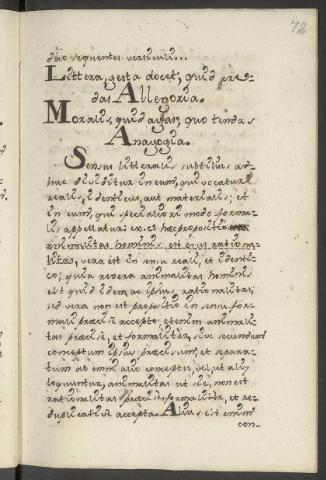 72
duo sequentes versiculi...
Littera, gesta docet, quid cre-
das Allegoria.
Moralis, quid agas, quo tendas
Anagogia.
Sensus litteralis subtilius ad-
huc dividitur in eum, qui vocatur
realis, identicus, aut materialis; et
in eum, qui specialiori modo forma-
lis appellatur: ex. c. haec propositio
animalitas hominis est ejus rationa-
litas, vera est in sensu reali, et identi-
co; quia revera animalitas hominis
est quid idem ac ipsius rationalitas;
sed vera non est propositio in sensu for-
mali praecise accepto; etenim animali-
tas praecise, et formaliter, sive secundum
conceptum ipsius praecisum, et separa-
tum ab omni alio conceptu, vel, ut alii
loquuntur, animalitas ut sic, non est
rationalitas praecise formaliter, et re-
duplicative accepta. Alius est enim
con-